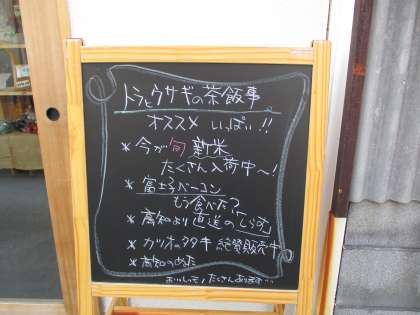 トラとウサギの茶飯事
オススメ いっぱい!!
* 今が旬 新米
たくさん入荷中〜!
* 富士子ベーコン
もう食べた?
* 高知より直送の「しらす」
* カツオのタタキ 絶賛販売中
* 高知の
おいしいモノたくさんあります…